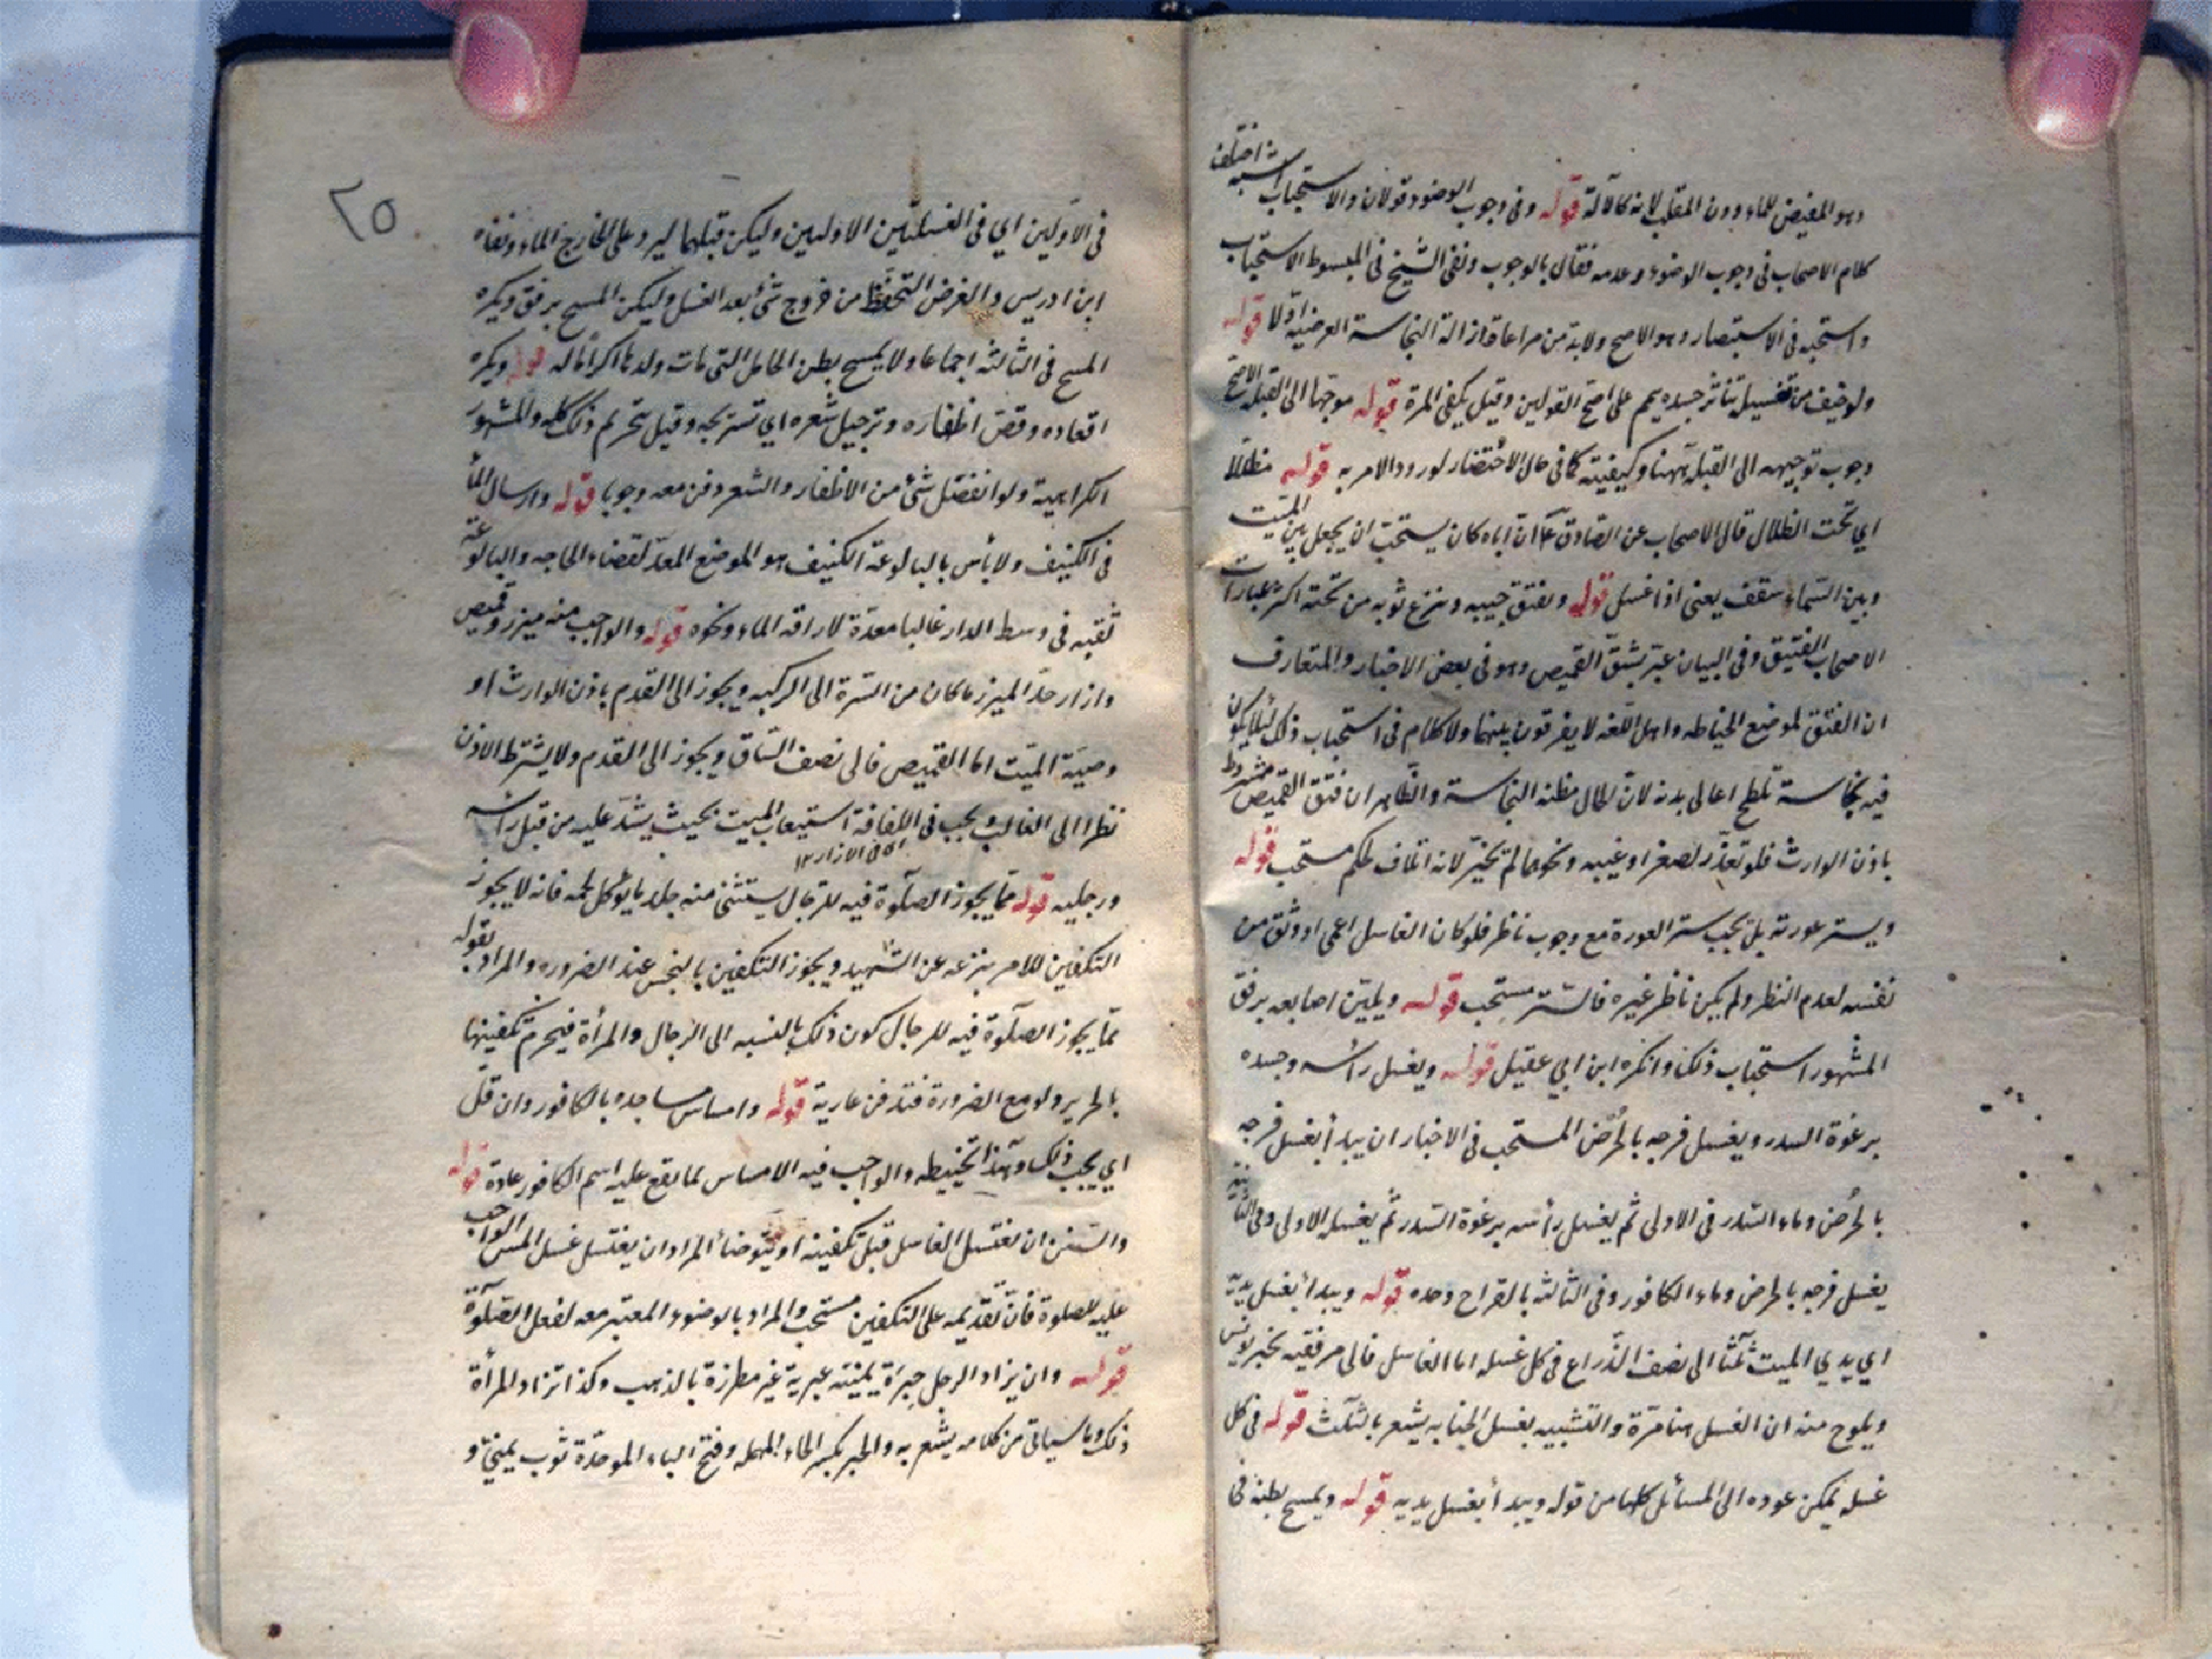 وهو المفيض للماء دون المقلب لانه كالآلة قوله وفي وجوب الوضوء قولان والاستحباب اشبه اختلف
كلام الاصحاب في وجوب الوضوء وعدمه فقال بالوجوب ونفى الشيخ في المبسوط الاستحباب
واستحبه في الاستبصار وهو الاصح ولابد من مراعاة ازالة النجاسة العرضية اولا قوله
ولو خيف من تغسيله تناثر جسده يمم على اصح القولين وقيل يكفي المرة قوله موجها الى القبلة الاصح
وجوب توجيهه الى القبلة ههنا وكيفيته كما في حال الاحتضار لورود الامر به قوله مظللا
اي تحت الظلال قال الاصحاب عن الصادق ع ان اباه كان يستحب ان يجعل بين الميت
وبين السماء سقف يعني اذا غسل قوله وفتق جيبه ونزع ثوبه من تحته اكثر عبارات
الاصحاب الفتيق وفي البيان عبر بشق القميص وهو في بعض الاخبار والمتعارف
ان الفتق لموضع الخياطه واهل اللغه لا يفرقون بينهما ولا كلام في استحباب ذلك لئلا يكون
فيه نجاسة تلطخ اعالي بدنه لان المال مظنه النجاسة والظاهر ان فتق القميص مشروط
باذن الوارث فلو تعذر لصغر او غيبه ونحوهما لم يجز لانه اتلاف لحكم مستحب قوله
ويستر عورته بل يجب ستر العورة مع وجوب ناظر فلو كان الغاسل اعمى او وثق من
نفسه لعدم النظر ولم يكن ناظر غيره فالستر مستحب قوله ويليّن اصابعه برفق
المشهور استحباب ذلك وانكره ابن ابي عقيل قوله ويغسل رأسه وجسده
برغوة السدر ويغسل فرجه بالحرض المستحب في الاخبار ان يبدأ بغسل فرجه
بالحرض وماء السدر في الاولى ثم يغسل رأسه برغوة السدر ثم يغسله الاولى وفي الثانية
يغسل فرجه بالحرض وماء الكافور وفي الثالثه بالقراح وحده قوله ويبدأ بغسل يديه
اي يدي الميت ثلثا الى نصف الذراع في كل غسله اما الغاسل فالى مرفقيه لخبر يونس
ويلوح منه ان الغسل هنا مرة والتشبيه بغسل الجنابه يشعر بالثلث قوله في كل
غسله يمكن عوده الى المسائل كلها من قوله ويبدأ بغسل يديه قوله ويمسح بطنه في
٢٥
في الاولين اي في الغسلتين الاوليين وليكن قبلهما ليرد على الخارج الماء ونفاه
ابن ادريس والغرض التحفظ من خروج شئ بعد الغسل وليكن المسح برفق ويكره
المسح في الثالثه اجماعا ولا يمسح بطن الحامل التي مات ولدها اكراما له قوله ويكره
اقعاده وقص اظفاره وترجيل شعره اي تسريحه وقيل تحريم ذلك كله والمشهور
الكراهية ولو انفصل شئ من الاظفار والشعر دفن معه وجوبا قوله وارسال الماء
في الكنيف ولا بأس بالبالوعة الكنيف هو الموضع المعد لقضاء الحاجه والبالوعة
ثقبه في وسط الدار غالبا معدة لاراقه الماء ونحوه قوله والواجب منه ميزر وقميص
وازار حد الميزر ما كان من السرة الى الركبه ويجوز الى القدم باذن الوارث او
وصية الميت اما القميص فالى نصف الساق ويجوز الى القدم ولا يشترط الاذن
نظرا الى الغالب ويجب في اللفافة استيعاب الميت بحيث يشد عليه من قبل رأسه
ورجليه قوله مما يجوز الصلوة فيه للرجال يستثنى منه جلد ما يؤكل لحمه فانه لا يجوز
التكفين للامر بنزعه عن الشهيد ويجوز التكفين بالنجس عند الضروره والمراد بقوله
مما يجوز الصلوة فيه للرجال كون ذلك بالنسبه الى الرجال والمرأة فيحرم تكفينها
بالحرير ولو مع الضرورة فتدفن عارية قوله وامساس مساجده بالكافور وان قل
اي يجب ذلك وهذا تحنيطه والواجب فيه الامساس بما يقع عليه اسم الكافور عادة قوله
والسنن ان يغتسل الغاسل قبل تكفينه او يتوضأ المراد ان يغتسل غسل المس الواجب
عليه للصلوة فان تقديمه على التكفين مستحب والمراد بالوضوء المعتبر معه لفعل الصلوة
قوله وان يزاد الرجل حبرة يمنيّة عبرية غير مطرزة بالذهب وكذا تزاد المرأة
ذلك وما سيأتي من كلامه يشعر به والحبر بكسر الحاء المهمله وفتح الباء الموحدة ثوب يمني و